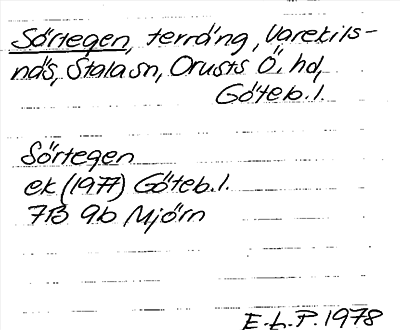 Sörtegen, terräng, Varekils-
näs, Stala sn, Orusts Ö. hd,
Göteb. l.
Sörtegen
ek (1977) Göteb. l.
7B 9b Mjörn
E. b. P. 1978